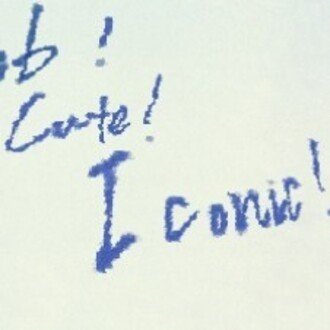 ob!
Cute!
Iconic!